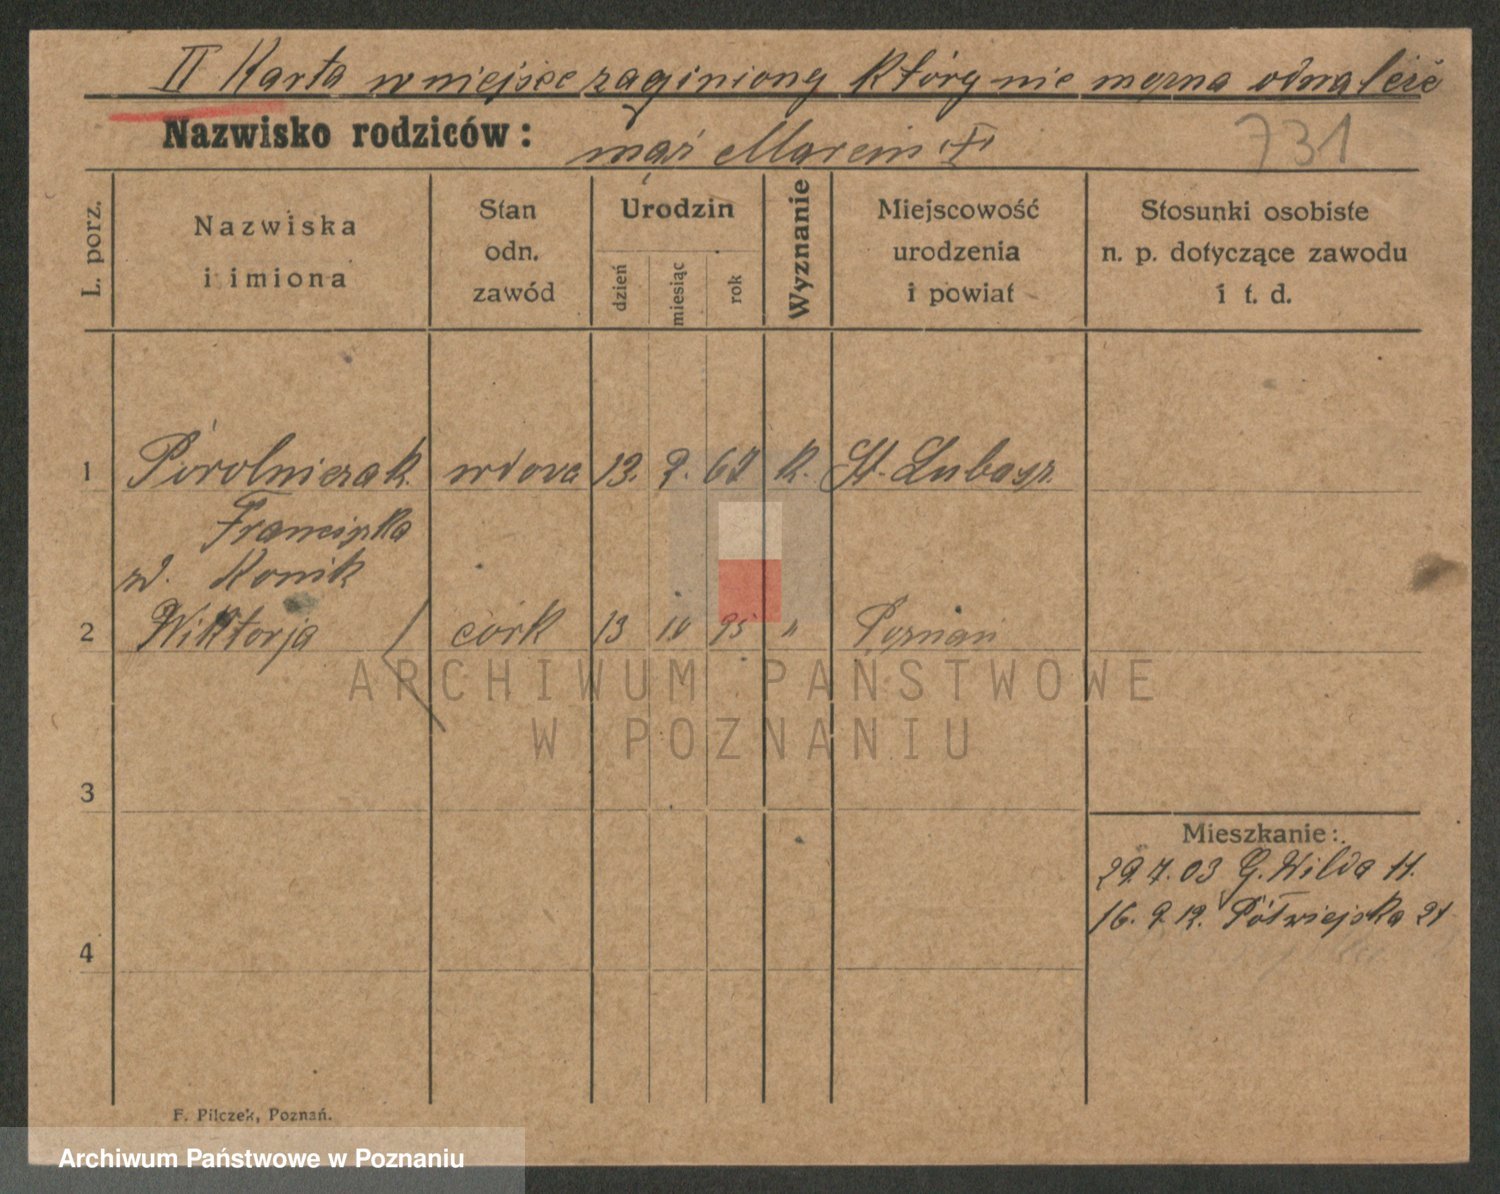 II Karta w miejsce zaginionej której nie można odnaleźć
Nazwisko rodziców: mąż Marcin †
731
L. porz.
Nazwiska
i imiona
Stan
odn.
zawód
Urodzin
dzień
miesiąc
rok
Wyznanie
Miejscowość
urodzenia
i powiat
Stosunki osobiste
n. p. dotyczące zawodu
i t. d.
1 wdova 13. 2. K. St. Lubosz.
Franciszka
zd. Konik
2 Wiktorja córk 13 10 95 " Poznań
ARCHIWUM PAŃSTWOWE
W POZNANIU
3
Mieszkanie:
29.7.03 G. Wilda 11.
16. 9 12. Półwiejska 21
4
F. Pilczek, Poznań.
Archiwum Państwowe w Poznaniu